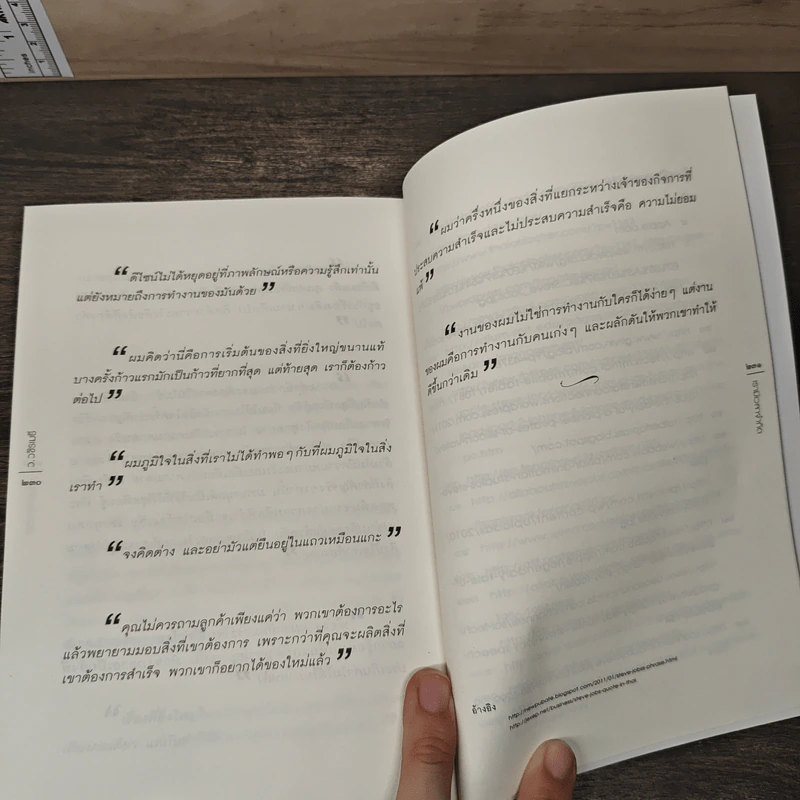 “ดีไซน์ไม่ได้หยุดอยู่ที่ภาพลักษณ์หรือความรู้สึกเท่านั้น
แต่ยังหมายถึงการทำงานของมันด้วย”
“ผมคิดว่านี่คือการเริ่มต้นของสิ่งที่ยิ่งใหญ่ขนานแท้
บางครั้งก้าวแรกมักเป็นก้าวที่ยากที่สุด แต่ท้ายสุด เราก็ต้องก้าว
ต่อไป”
“ผมภูมิใจในสิ่งที่เราไม่ได้ทำพอๆ กับที่ผมภูมิใจในสิ่ง
เราทำ”
“จงคิดต่าง และอย่ามัวแต่ยืนอยู่ในแถวเหมือนแกะ”
“คุณไม่ควรถามลูกค้าเพียงแค่ว่า พวกเขาต้องการอะไร
แล้วพยายามมอบสิ่งที่เขาต้องการ เพราะกว่าที่คุณจะผลิตสิ่งที่
เขาต้องการสำเร็จ พวกเขาก็อยากได้ของใหม่แล้ว”
๒๓๐
“ผมว่าครึ่งหนึ่งของสิ่งที่แยกระหว่างเจ้าของกิจการที่
ประสบความสำเร็จและไม่ประสบความสำเร็จคือ ความไม่ยอม
แพ้”
“งานของผมไม่ใช่การทำงานกับใครก็ได้ง่ายๆ แต่งาน
ของผมคือการทำงานกับคนเก่งๆ และผลักดันให้พวกเขาทำให้
ดีขึ้นกว่าเดิม”
๒๓๑
อ้างอิง
inches